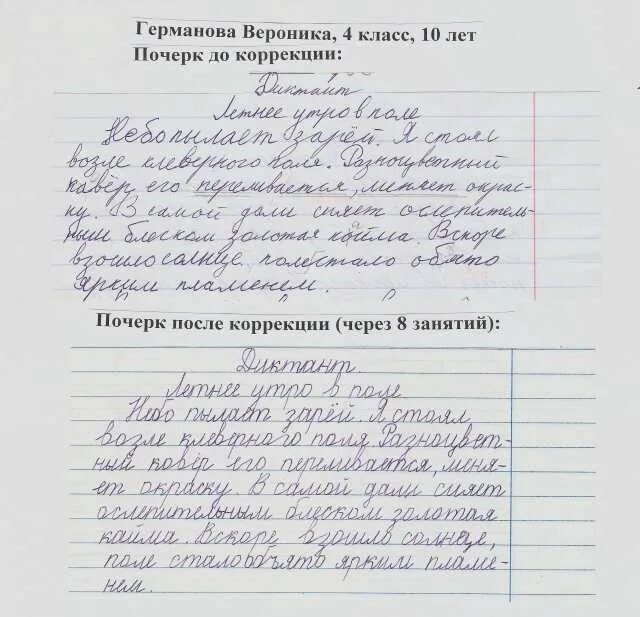 Германова Вероника, 4 класс, 10 лет
Почерк до коррекции:
Диктант
Летнее утро в поле
Небо пылает зарёй. Я стоял
возле клеверного поля. Разноцветный
кавёр его переливается, меняет окрас-
ку. В самой дали сияет ослепитель-
ным блеском золотая кайма. Вскоре
взошло солнце поле стало обято
ярким пламенем.
Почерк после коррекции (через 8 занятий):
Диктант.
Летнее утро в поле
Небо пылает зарёй. Я стоял
возле клеверного поля. Разноцвет-
ный ковёр его переливается, меня-
ет окраску. В самой дали сияет
ослепительным блеском золотая
кайма. Вскоре взошло солнце,
поле стало объято ярким пламе-
нем.